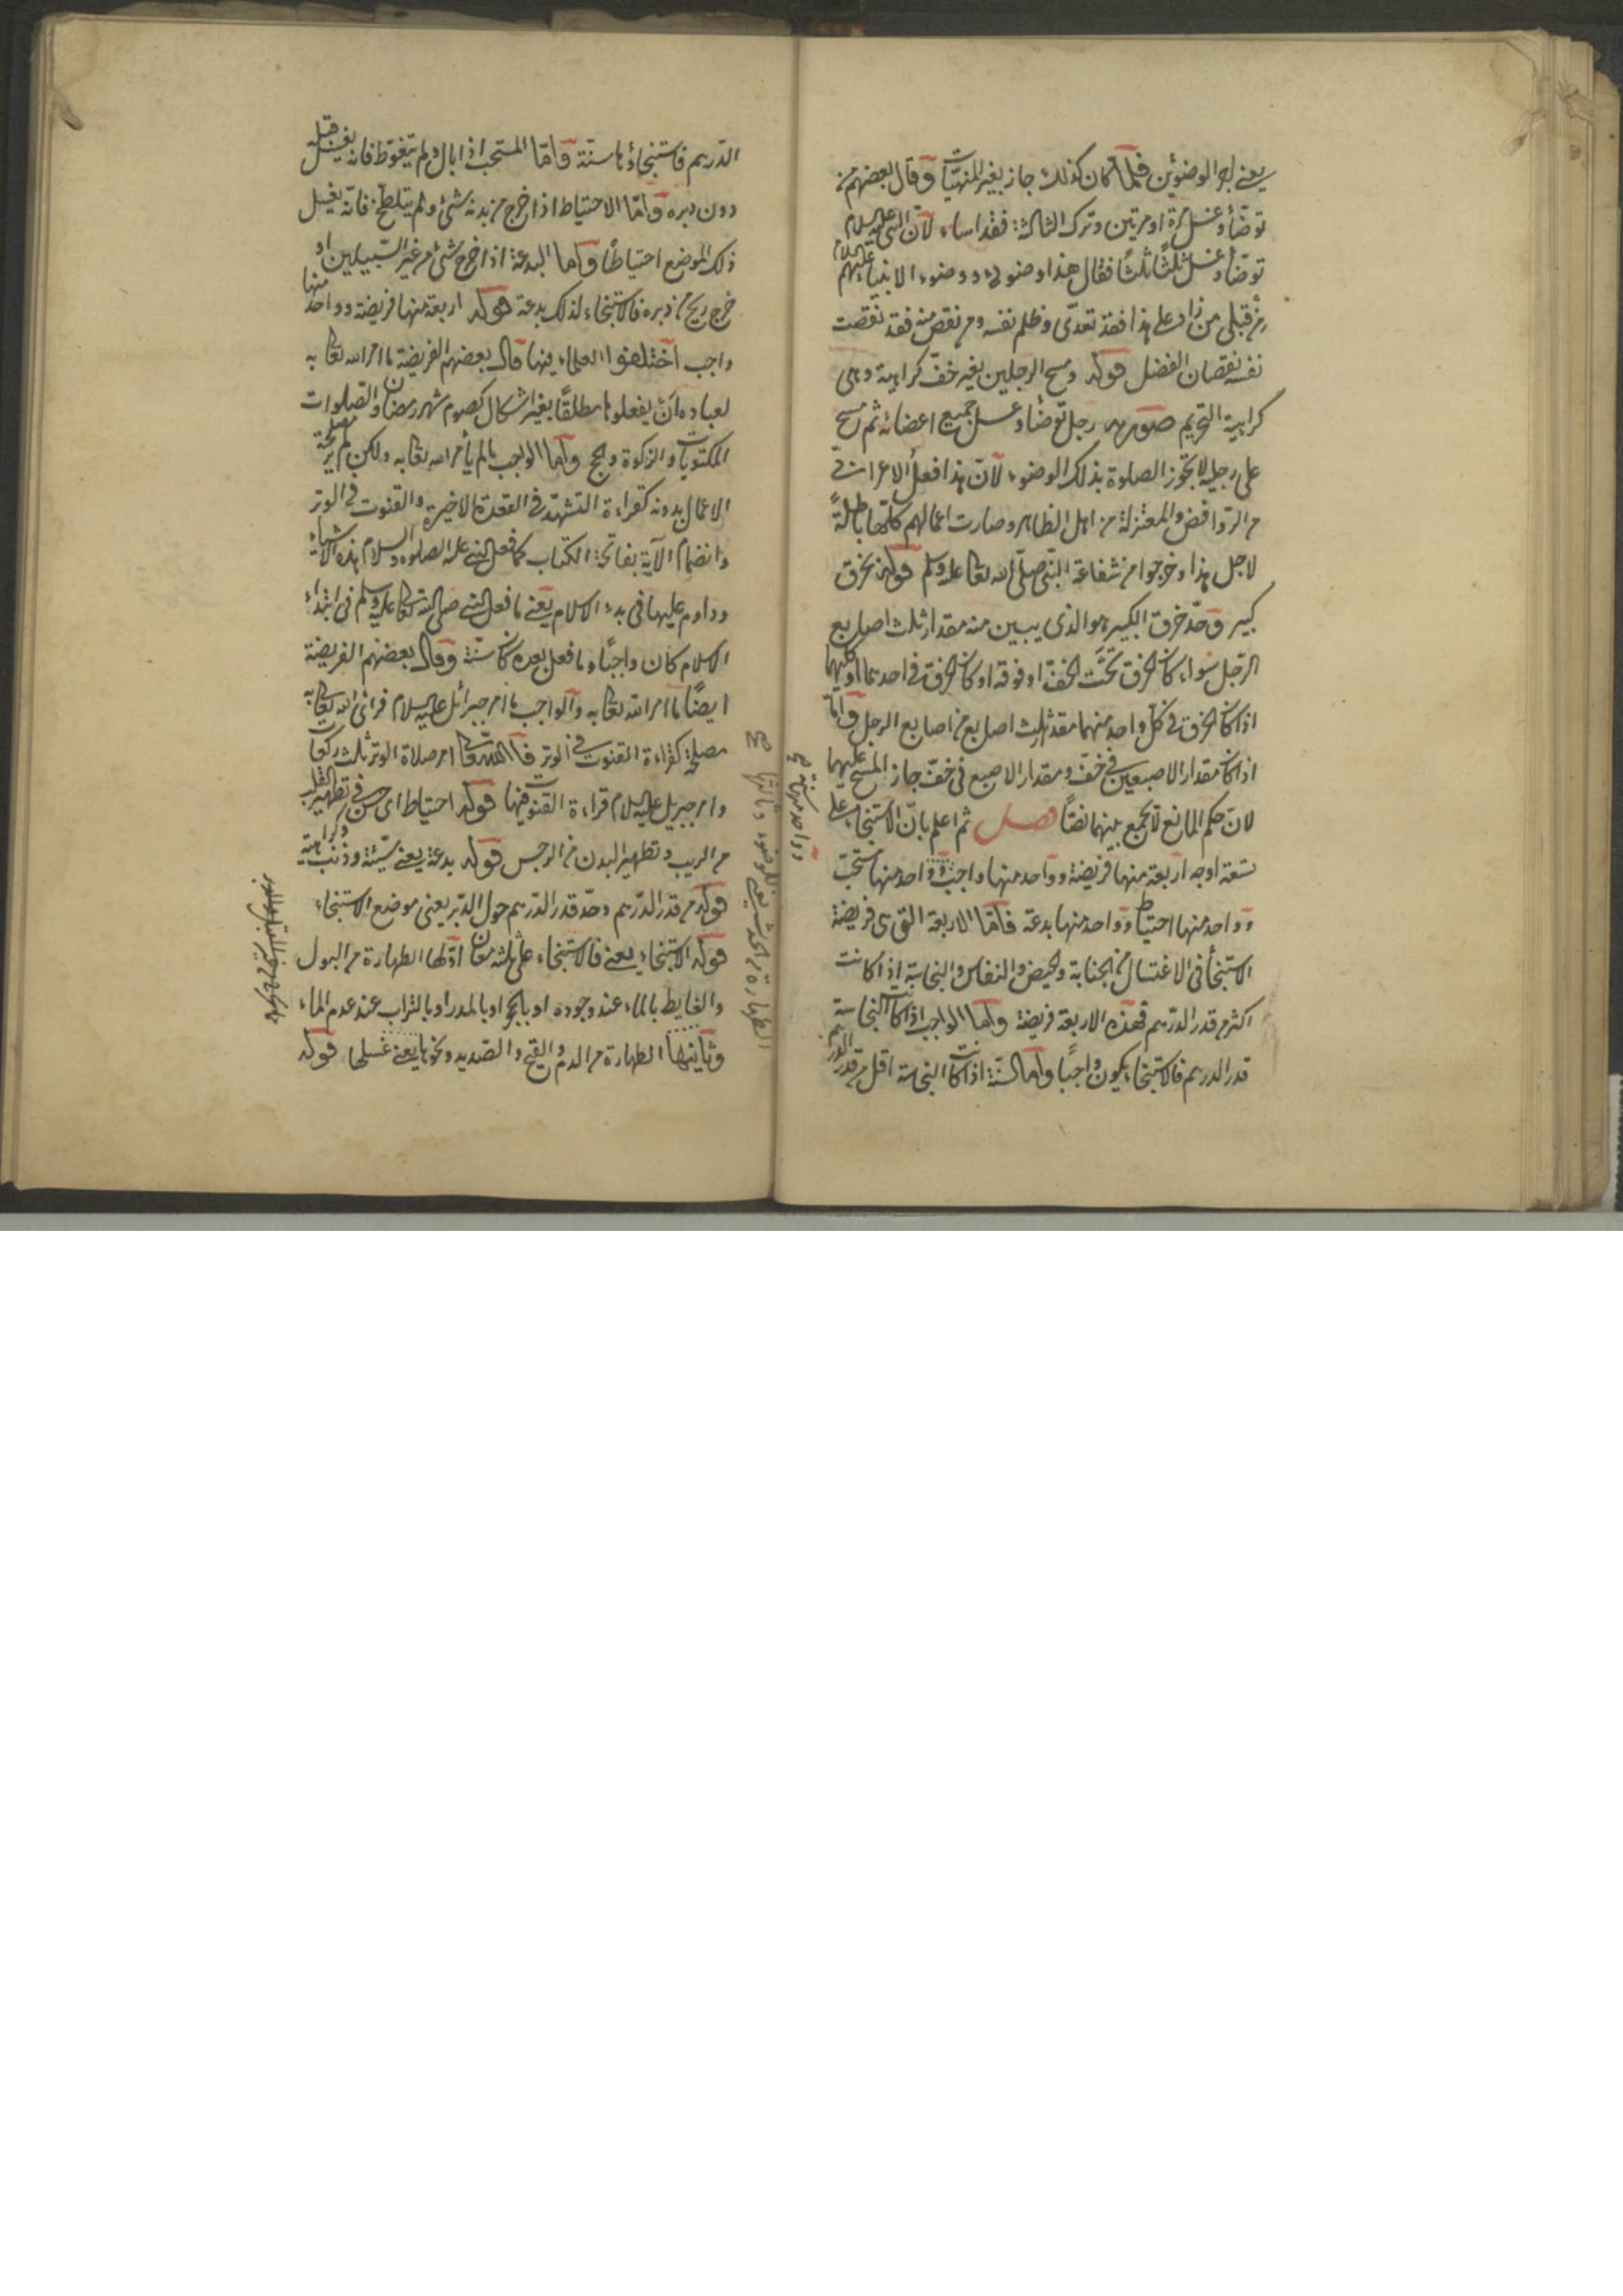 يعنى اجر الوضوئين فلما كان كذلك جاز بغير المنهيات وقال بعضهم من
توضأ وغسل مرة او مرتين وترك الثالثة فقد اساء لان النبى عليه السلام
توضأ وغسل ثلثا ثلثا فقال هذا وضوئى ووضوء الانبياء عليهم السلام
من قبلى من زاد على هذا فقد تعدى وظلم نفسه ومن نقص منه فقد نقصت
نفسه نقصان الفضل قوله ومسح الرجلين بغير خف كراهية وهى
كراهية التحريم صورته رجل توضأ وغسل جميع اعضائه ثم مسح
على رجليه لا تجوز الصلوة بذلك الوضوء لان هذا فعل
من الروافض والمعتزلة من اهل الظاهر وصارت اعمالهم كلها باطلة
لاجل هذا وخرجوا من شفاعة النبى صلى الله تعالى عليه وسلم قوله من خرق
كبير وحد خرق الكبير هو الذى يبين منه مقدار ثلث اصابع
الرجل سواء كان الخرق تحت الخف او فوقه او كان الخرق فى احدهما او كليهما
اذا كان الخرق فى كل واحد منهما مقدار ثلث اصابع من اصابع الرجل واما
اذا كان مقدار الاصبعين فى خف ومقدار الاصبع فى خف جاز المسح عليهما
لان حكم المانع لا يجمع بينهما نصا فصل ثم اعلم بان الاستنجاء على
تسعة اوجه اربعة منها فريضة وواحد منها واجب وواحد منها مستحب
وواحد منها احتياط وواحد منها بدعة فاما الاربعة التى هى فريضة
الاستنجأ فى الاغتسال من الجنابة والحيض والنفاس والنجاسة اذا كانت
اكثر من قدر الدرهم فهذه الاربعة فريضة واما الواجب اذا كانت النجاسة
قدر الدرهم فالاستنجاء يكون واجبا واما السنة اذا كانت النجاسة اقل من قدر الدرهم
وواحد منها سنة صح
الدرهم فاستنجاؤها سنة واما المستحب اذا بال ولم يتغوط فانه يغسل قبله
دون دبره واما الاحتياط اذا خرج من بدنه شئ ولم يتلطخ فانه يغسل
ذلك الموضع احتياطا واما البدعة اذا خرج شئ من غير السبيلين او
خرج ريح من دبره فالاستنجاء لذلك بدعة قوله اربعة منها فريضة وواحد منها
واجب اختلفوا العلماء فيها قال بعضهم الفريضة ما امر الله تعالى به
لعباده ان يفعلوها مطلقا بغير اشكال كصوم شهر رمضان والصلوات
المكتوبات والزكوة والحج واما الواجب ما لم يأمر الله تعالى به ولكن لم
الاعمال بدونه كقراءة التشهد فى القعدة الاخيرة والقنوت فى الوتر
وانضمام الآية بفاتحة الكتاب كما فعل النبى عليه الصلوة والسلام هذه الاشياء
وداوم عليها فى بدء الاسلام يعنى ما فعل النبى صلى الله تعالى عليه وسلم فى ابتداء
الاسلام كان واجبا وما فعل بعده كان سنة وقال بعضهم الفريضة
ايضا ما امر الله تعالى به والواجب ما امر جبرائل عليه السلام فرأى الله تعالى به
مصلحة كقراءة القنوت فى الوتر فان الله تعالى امر صلاة الوتر ثلث ركعات
وامر جبريل عليه السلام قراءة القنوت فيها قوله احتياط اى حسن فى تطهير القلب
من الريب وتطهير البدن من الرجس قوله بدعة يعنى سيئة وذنب وكراهية
قوله من قدر الدرهم وحد قدر الدرهم حول الدبر يعنى موضع الاستنجاء
قوله الاستنجاء يعنى فالاستنجاء على ثلثة معان اولها الطهارة من البول
والغايط بالماء عند وجوده او بالحجر او بالمدر او بالتراب عند عدم الماء
وثانيها الطهارة من الدم والقيح والصديد ونحوها يعنى غسلها قوله
الطهارة من الحدث يعنى الوضوء وثالثها صح